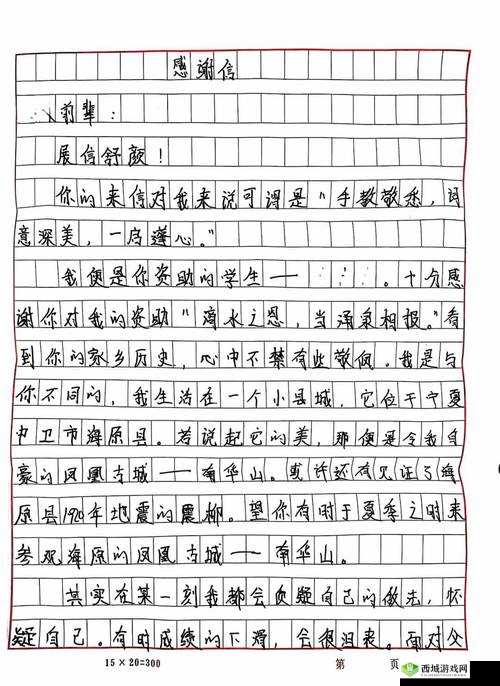 感谢信
前辈：
展信舒颜！
你的来信对我来说可谓是“手教敬悉，因
意深美，一启蓬心。”
我便是你资助的学生——。十分感
谢你对我的资助“滴水之恩，当涌泉相报。”看
到你的家乡历史，心中不禁有些敬佩。我是与
你不同的，我生活在一个小县城，它位于宁夏
中卫市海原县。若说起它的美，那便是令我自
豪的凤凰古城——南华山。或许还有见证了海
原县1920年地震的震柳。望你有时于夏季之时来
参观海原的凤凰古城——南华山。
其实在某一刻我都会质疑自己的做法，怀
疑自己。有时成绩的下滑，会很沮丧。面对父
15×20=300 第 页
西城游戏网